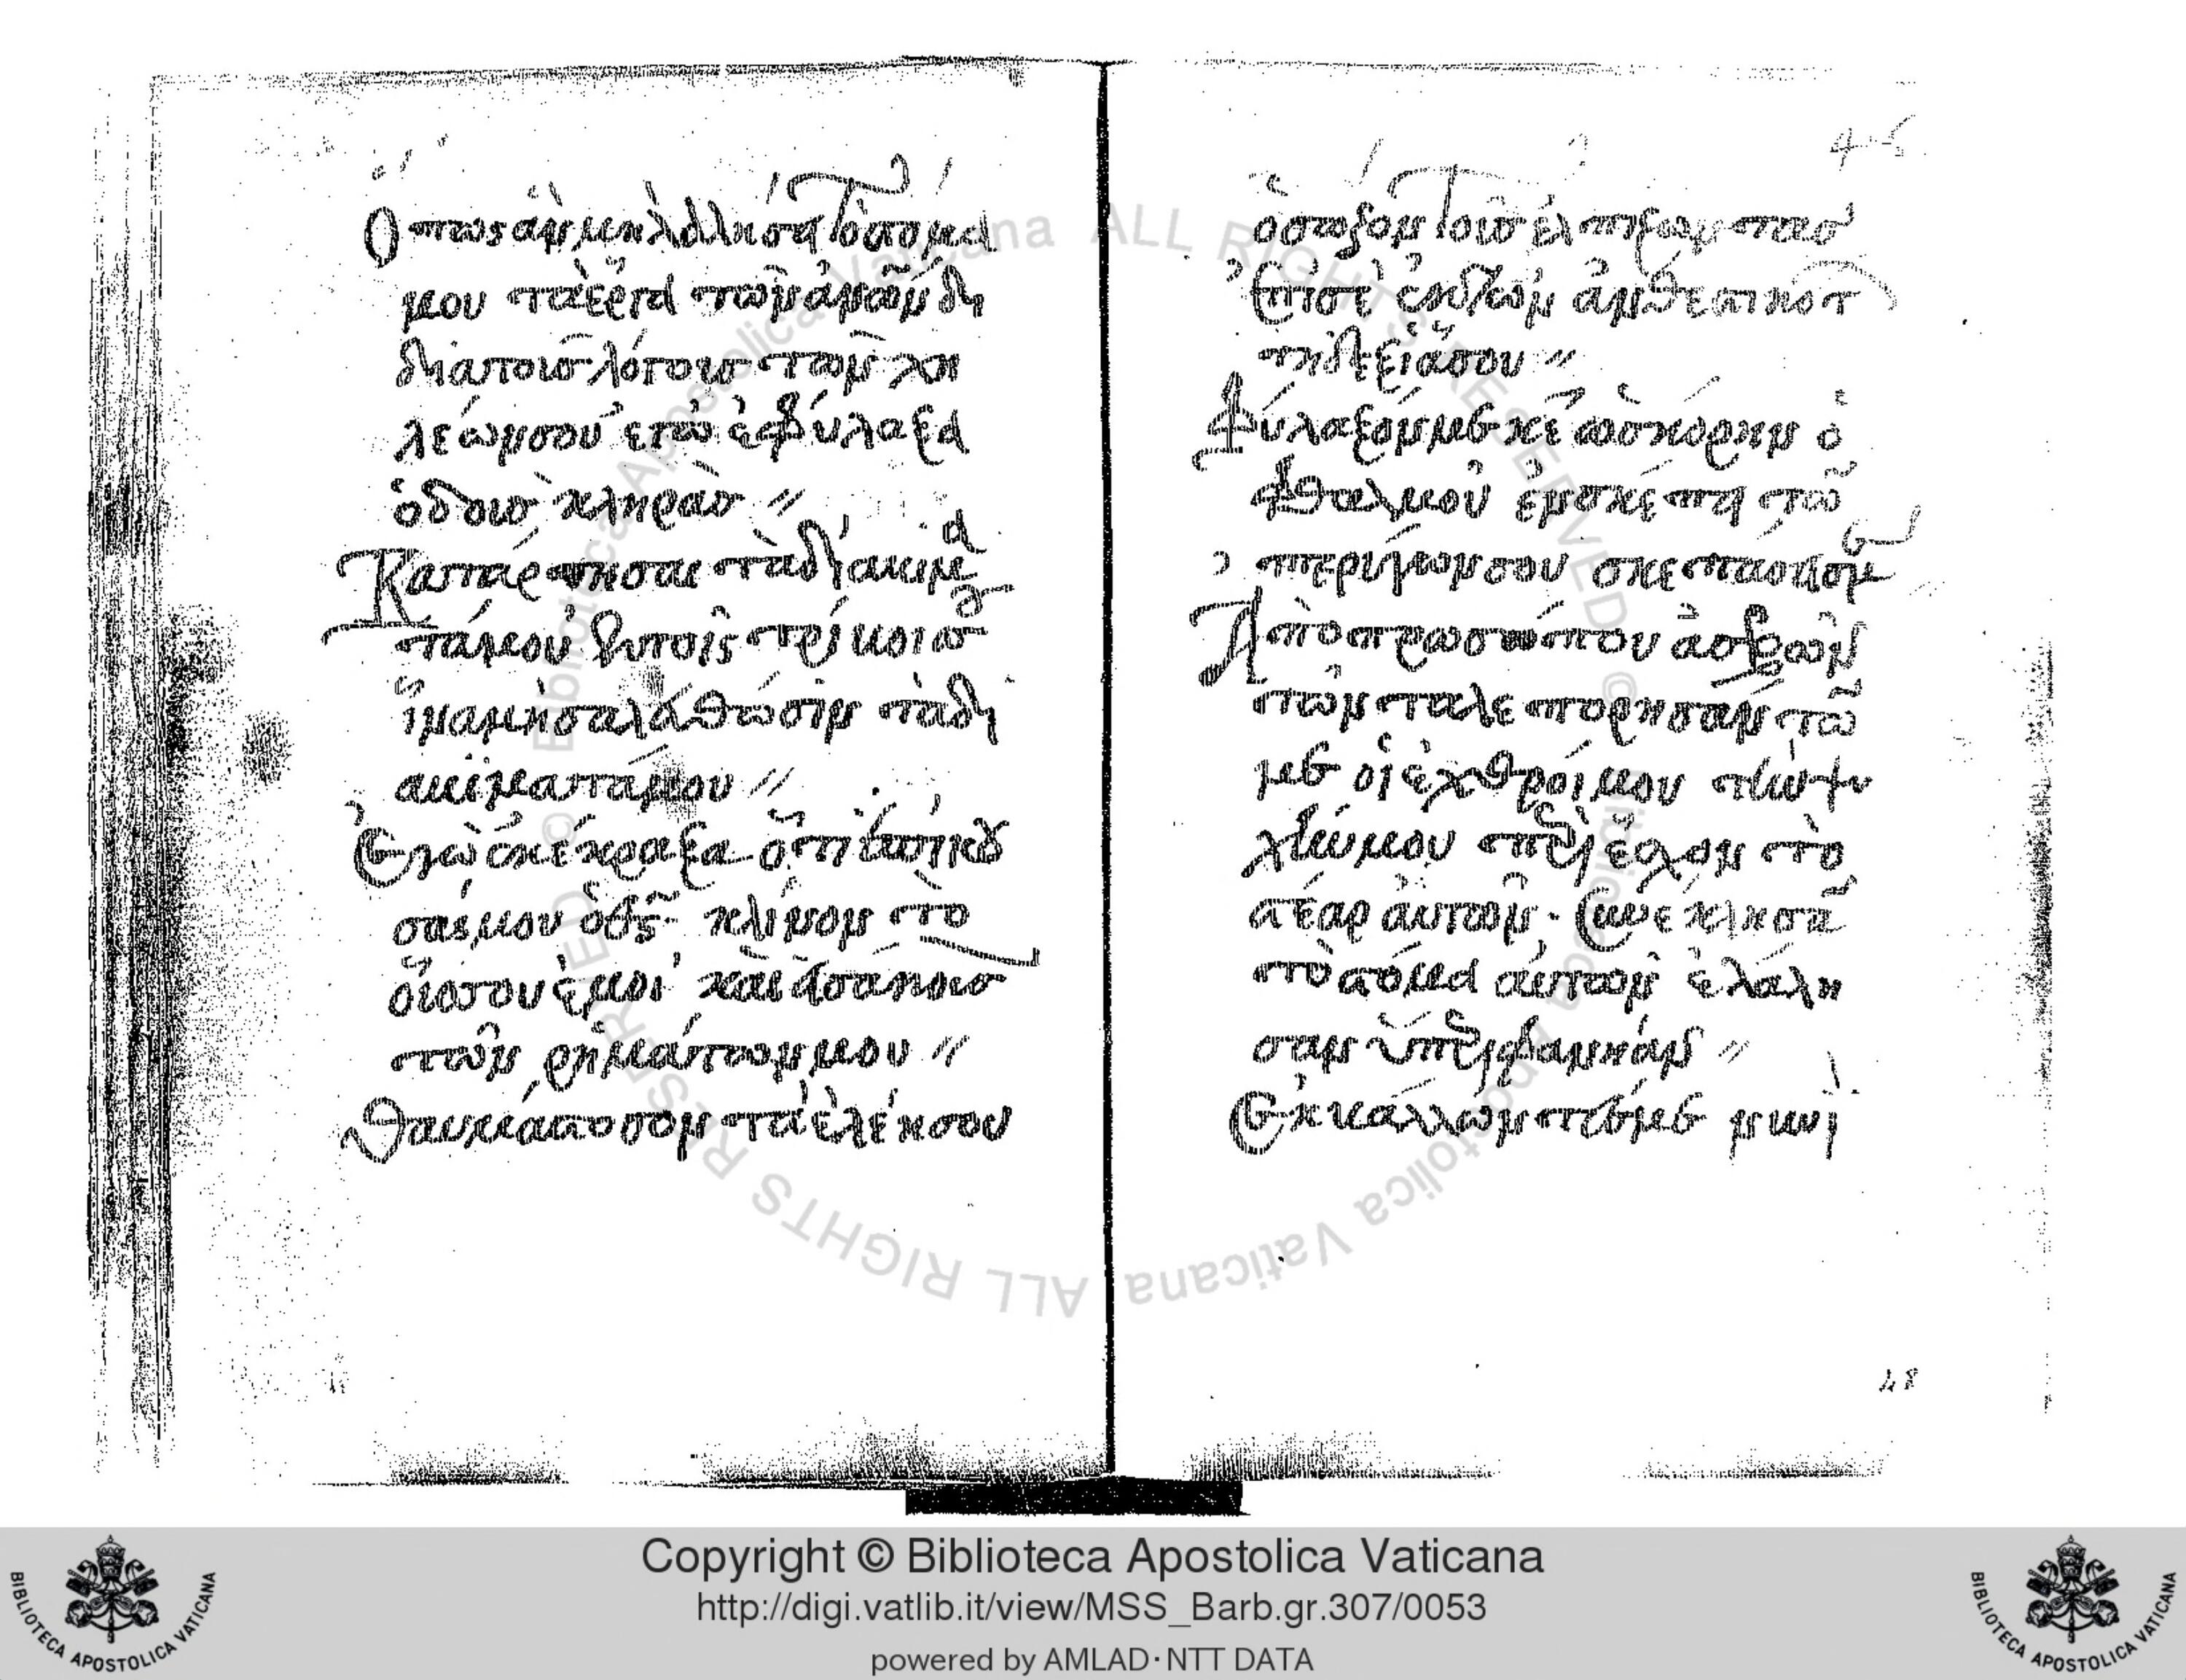 Ὅπως ἂν μὴ λαλήσῃ τὸ στόμα
μου τὰ ἔργα τῶν ἀνῶν δη
διὰ τοὺσ λόγουσ τῶν χη
λέων σου ἐγὼ ἐφύλαξα
ὁδοὺσ κληρὰσ //
Κατάρτησαι τὰ διακινμα
τά μου ἐν τοῖς τρίβοισ
ἵνα μὴ σαλαθῶσιν τὰ δι
ακίματά μου //
Ἐγὼ ἐκέκραξα ὅτι ἐπίκου
σάς μου ὁ θς κλίνον τὸ
οὖσ σου ἐμοὶ καὶ εἰσάκουσ
τῶν ρημάτων μου //
θαυμάστοσον τὰ ἐλέη σου
ὁ σώζον τοὺσ ἐλπίζωντασ
ἐπὶ σὲ ἐκ τῶν ἀνθεστικότ
τῇ δεξιᾶ σου //
Φύλαξόν με κε ὡσ κόρην ὀ
φθαλμοῦ ἐν σκέπη τῶ
πτερύγων σου σκεπάσεισ μ
Ἀπὸ προσώπου ἀσεβῶν
τῶν ταλεπορησάν τω
με οἱ ἐχθροί μου τὴν ψυ
χήν μου περιέσχον τὸ
στέαρ αὐτῶν. Συνέκλησα
τὸ στόμα αὐτῶν ἐλάλη
σαν ὑπεριφανήαν //
Ἐκβάλλων τές με νυνὶ
48
Copyright © Biblioteca Apostolica Vaticana
http://digi.vatlib.it/view/MSS_Barb.gr.307/0053
powered by AMLAD·NTT DATA
BIBLIOTECA APOSTOLICA VATICANA
BIBLIOTECA APOSTOLICA VATICANA